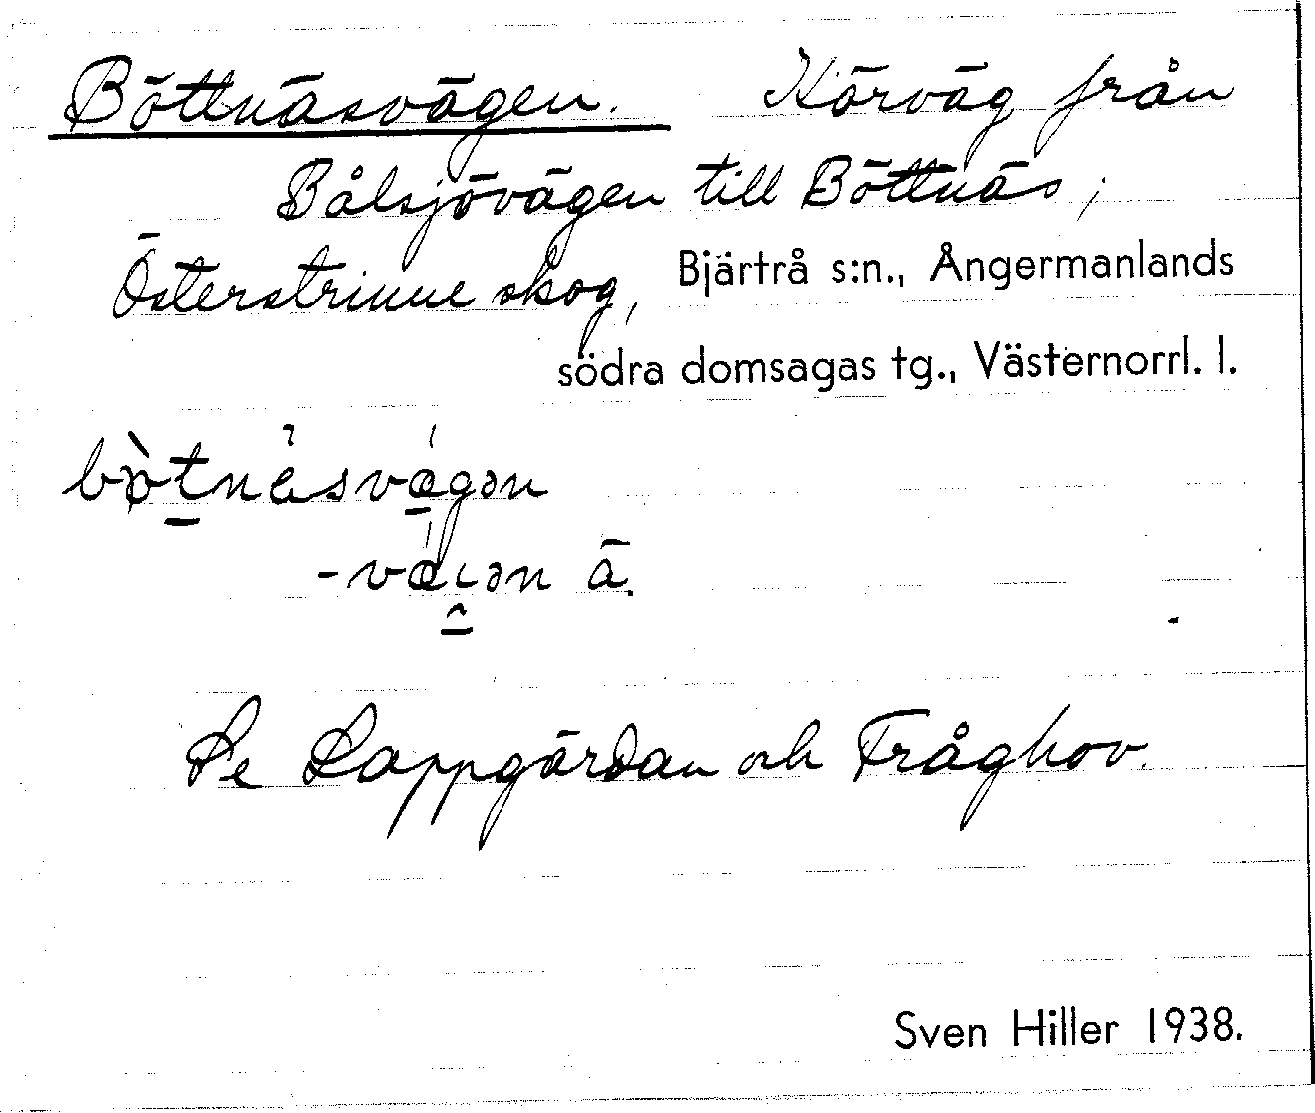 Böttnäsvägen. Körväg från
Bålsjövägen till Böttnäs;
Österstrinne skog, Bjärtrå s:n., Ångermanlands
södra domsagas tg., Västernorrl. l.
-vägən ä.
Se Lappgärdan och Tråghov.
Sven Hiller 1938.